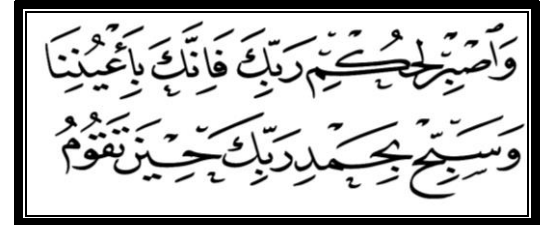 وَاصْبِرْ لِحُكْمِ رَبِّكَ فَإِنَّكَ بِأَعْيُنِنَا
وَسَبِّحْ بِحَمْدِ رَبِّكَ حِينَ تَقُومُ